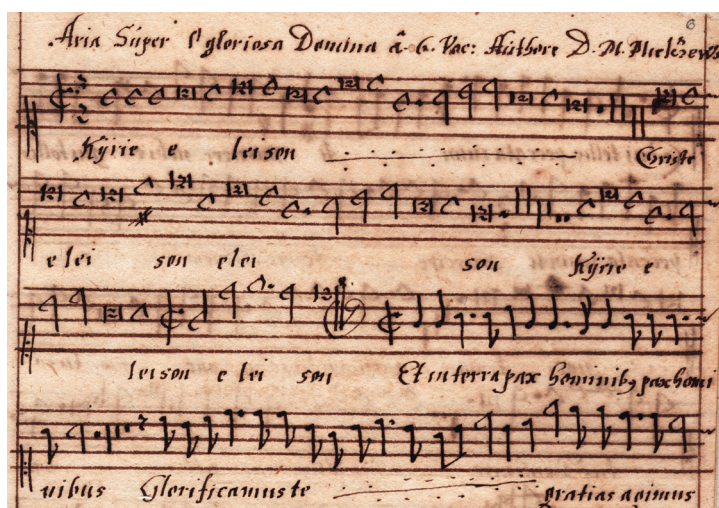 6
Aria Súper O gloriosa Domina â. 6. Voc: Aúthore D. M.
Kÿrie e leison Christe
e lei son elei son Kÿrie e
leison e lei son Et in terra pax hominib9 pax homi
nibus Glorificamus te gratias agimus